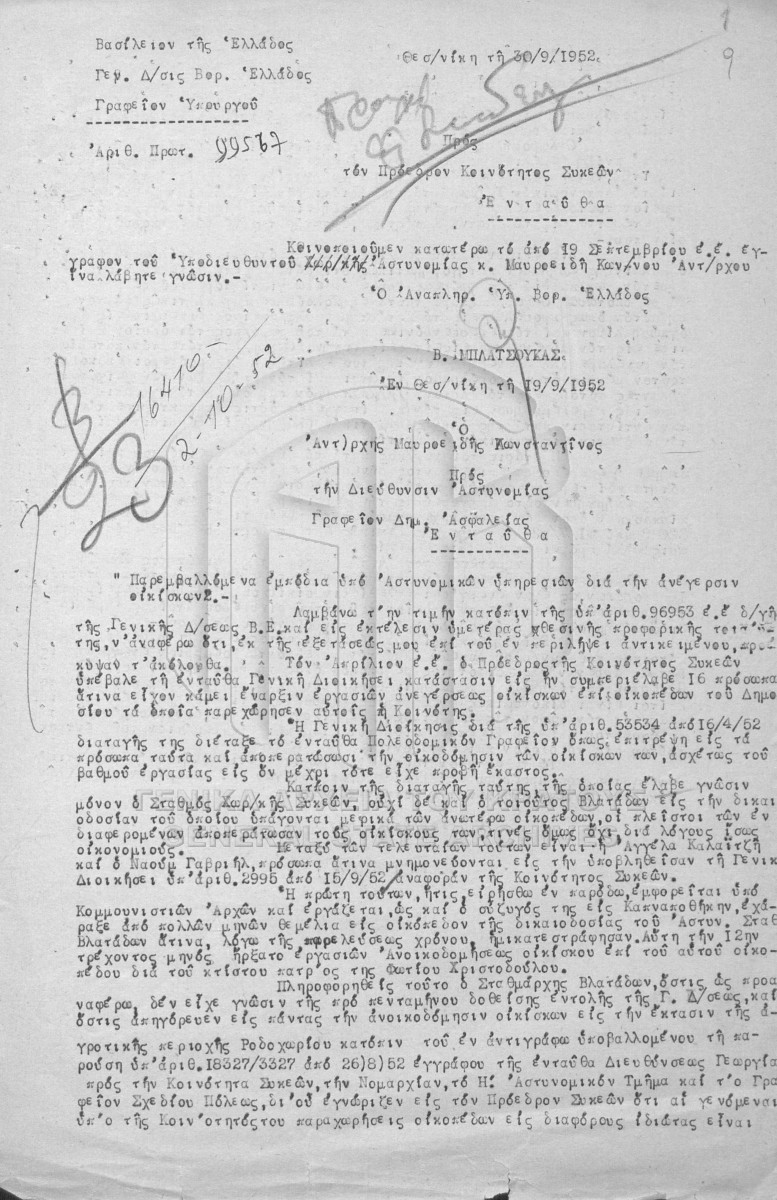 1
9
Βασίλειον τῆς Ἑλλάδος
Θεσ/νίκη τῇ 30/9/1952
Γεν. Δ/σις Βορ. Ἑλλάδος
Γραφεῖον Ὑπουργοῦ
Ἀριθ. Πρωτ. 99567
Πρός
τόν Πρόεδρον Κοινότητος Συκεῶν
Ἐ ν τ α ῦ θ α
Κοινοποιοῦμεν κατωτέρω τό ἀπό 19 Σεπτεμβρίου ἐ.ἔ. ἔγ-
γραφον τοῦ Ὑποδιευθυντοῦ Ἀστυνομίας κ. Μαυροειδῆ Κων/νου Ἀντ/ρχου
ἵνα λάβητε γνῶσιν.-
Ὁ Ἀναπληρ. Ὑπ. Βορ. Ἑλλάδος
Β. ΜΠΛΑΤΣΟΥΚΑΣ
16410-
2-10-52
Ἐν Θεσ/νίκῃ τῇ 19/9/1952
Ὁ
Ἀντ)ρχης Μαυροειδῆς Κωνσταντῖνος
Πρός
τήν Διεύθυνσιν Ἀστυνομίας
Γραφεῖον Δημ. Ἀσφαλείας
Ἐ ν τ α ῦ θ α
" Παρεμβαλλόμενα ἐμπόδια ὑπό Ἀστυνομικῶν ὑπηρεσιῶν διά τήν ἀνέγερσιν
οἰκίσκων2.-
Λαμβάνω τ'ην τιμήν κατόπιν τῆς ὑπ'ἀριθ.96953 ἐ.ἔ δ/γῆ
τῆς Γενικῆς Δ/σεως Β.Ε.καί εἰς ἐκτέλεσιν ὑμετέρας προφορικῆς
της,ν'ἀναφέρω ὅτι,ἐκ τῆς ἐξετάσεώς μου ἐπί τοῦ ἐν περιλήψει ἀντικειμένου,προέ
κυψαν τ'ἀκόλουθα. Τόν Ἀπρίλιον ἐ.ἔ. ὁ Πρόεδροςτῆς Κοινότητος Συκεῶν
ὑπέβαλε τῇ ἐνταῦθα Γενικῇ Διοικήσει κατάστασιν εἰς ἥν συμπεριέλαβε 16 πρόσωπα
ἅτινα εἶχον κάμει ἔναρξιν ἐργασιῶν ἀνεγέρσεως οἰκίσκων ἐπί οἰκοπέδων τοῦ Δημο
σίου τά ὁποῖα παρεχώρησεν αὐτοῖς ἡ Κοινότης.
Ἡ Γενική Διοίκησις διά τῆς ὑπ'ἀριθ.53534 ἀπό 16/4/52
διαταγῆς της διέταξε τό ἐνταῦθα Πολεοδομικόν Γραφεῖον ὅπως ἐπιτρέψῃ εἰς τά
πρόσωπα ταῦτα καί ἀποπερατώσωσι τήν οἰκοδόμησιν τῶν οἰκίσκων των,ἀσχέτως τοῦ
βαθμοῦ ἐργασίας εἰς ὅν μέχρι τότε εἶχε προβῆ ἕκαστος.
Κατόπιν τῆς διαταγῆς ταύτης,τῆς ὁποίας ἔλαβε γνῶσιν
μόνον ὁ Σταθμός Χωρ/κῆς Συκεῶν, οὐχί δέ καί ὁ τοιοῦτος Βλατάδων εἰς τήν δικαι
οδοσίαν τοῦ ὁποίου ὑπάγονται μερικά τῶν ἀνωτέρω οἰκοπέδων,οἱ πλεῖστοι τῶν ἐν
διαφερομένων ἀποπεράτωσαν τούς οἰκίσκους των,τινές ὅμως ὄχι,διά λόγους ἴσως
οἰκονομιούς. Μεταξύ τῶν τελευταίων τούτων εἶναι ἡ Ἀγγέλα Καλαϊτζῆ
καί ὁ Ναούμ Γαβριήλ,πρόσωπα ἅτινα μνημονεύονται εἰς τήν ὑποβληθεῖσαν τῇ Γενικ
Διοικήσει ὑπ'ἀριθ.2995 ἀπό 15/9/52 ἀναφοράν τῆς Κοινότητος Συκεῶν.
Ἡ πρώτη τούτων,ἥτις,εἰρήσθω ἐν παρόδω,ἐμφορεῖται ὑπό
Κομμουνιστιῶν Ἀρχῶν καί ἐργάζεται,ὡς καί ὁ σύζυγός της εἰς Καπναποθήκην,ἐχά
ραξε ἀπό πολλῶν μηνῶν θεμέλια εἰς οἰκόπεδον τῆς δικαιοδοσίας τοῦ Ἀστυν. Σταθ
Βλατάδων ἅτινα, λόγω τῆς παρελεύσεως χρόνου, ἡμικατεστράφησαν.Αὕτη τήν 12ην
τρέχοντος μηνός ἤρξατο ἐργασιῶν Ἀνοικοδομήσεως οἰκίσκου ἐπί τοῦ αὐτοῦ οἰκο-
πέδου διά τοῦ κτίστου πατρ'ος της Φωτίου Χριστοδούλου.
Πληροφορηθείς τοῦτο ὁ Σταθμάρχης Βλατάδων,ὅστις ὡς προα
ναφέρω, δέν εἶχε γνῶσιν τῆς πρό πενταμήνου δοθείσης ἐντολῆς τῆς Γ. Δ/σεως,καί
ὅστις ἀπηγόρευεν εἰς πάντας τήν ἀνοικοδόμησιν οἰκίσκων εἰς τήν ἔκτασιν τῆς ἀ-
γροτικῆς περιοχῆς Ροδοχωρίου κατόπιν τοῦ ἐν ἀντιγράφω ὑποβαλλομένου τῇ πα-
ρούσῃ ὑπ'ἀριθ.18327/3327 ἀπό 26)8)52 ἐγγράφου τῆς ἐνταῦθα Διευθύνσεως Γεωργία
πρός τήν Κοινότητα Συκεῶν,τήν Νομαρχίαν,τό Η! Ἀστυνομικόν Τμῆμα καί τ'ο Γρα
φεῖον Σχεδίου Πόλεως,δι'οὗ ἐγνώριζεν εἰς τόν Πρόεδρον Συκεῶν ὅτι αἱ γενόμεναι
ὑπ'ο τῆς Κοιν'οτητόςτου παραχωρήσεις οἰκοπέδων εἰς διαφόρους ἰδιώτας εἶναι